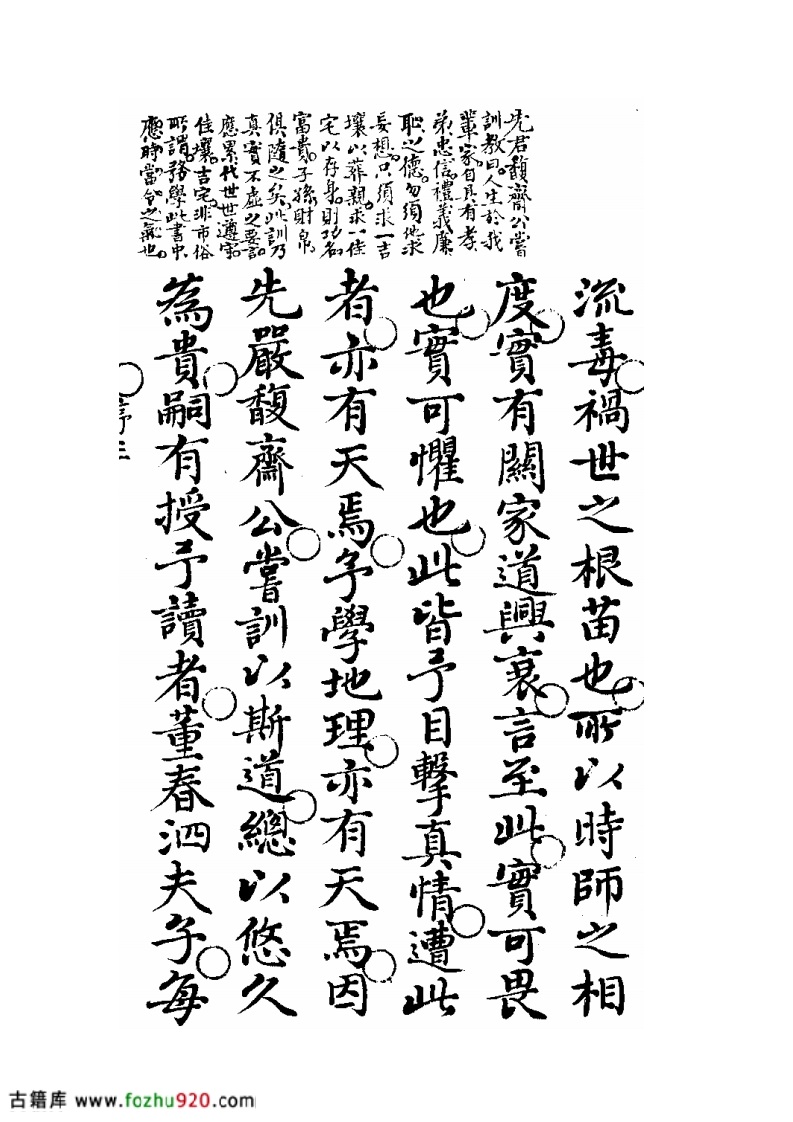 先君馥齋公嘗
訓教曰人生於我
輩家自具有孝
弟忠信禮義廉
恥之德勿須他求
妄想只須求一吉
壤以葬親求一佳
宅以存身則功名
富貴子孫財帛
俱隨之矣此訓乃
真實不虛之要言
應累代世世遵守
佳壤吉宅非市俗
所謂務學此書中
應時當令之氣也
流毒禍世之根苗也所以時師之相
度實有關家道興衰言至此實可畏
也實可懼也此皆予目擊真情遭此
者亦有天焉予學地理亦有天焉因
先嚴馥齋公嘗訓以斯道總以悠久
為貴嗣有授予讀者董春泗夫子每
序三
古籍库 www.fozhu920.com